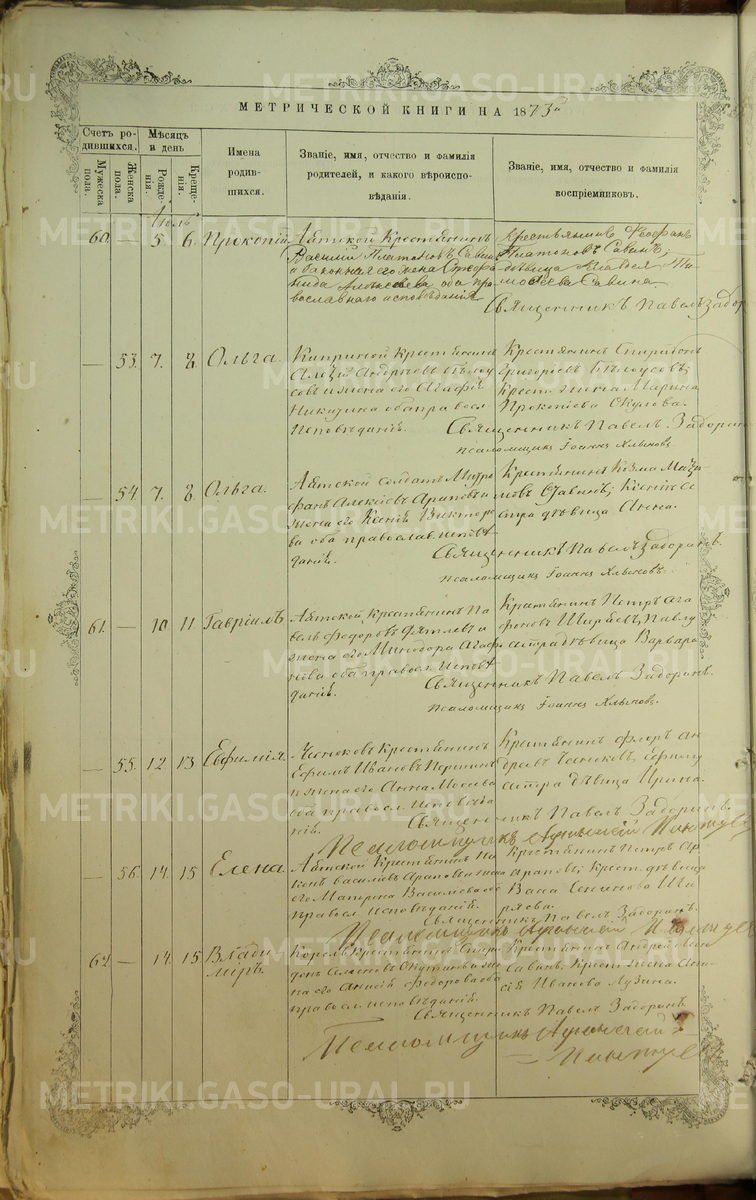 МЕТРИЧЕСКОЙ КНИГИ НА 1873й
Счетъ ро-
дившихся.
Мужеска
пола.
Женска
пола.
Мѣсяцъ
и день
Рожде-
нія.
Креще-
нія.
Имена
родив-
шихся.
Званіе, имя, отчество и фамилія
родителей, и какого вѣроиспо-
вѣданія.
Званіе, имя, отчество и фамилія
воспріемниковъ.
Іюль
60. — 5. 6. Прокопій
Крестьянинъ
Василій Платоновъ Савинъ
и законная его жена Стефа
нида Алексѣева оба пра
вославнаго исповѣданія
Крестьянинъ Феофанъ
Платоновъ Савинъ;
дѣвица Ти
моѳеева Савина
Священникъ Павелъ Задоринъ
— 53. 7. 8. Ольга.
Крестьянинъ
Андреевъ Бѣлоу
совъ и жена его Агафія
Никитина оба правосл
исповѣданія.
Крестьянинъ Спиридонъ
Григорьевъ Бѣлоусовъ;
Крест. жена Марина
Прокопіева Окулова.
Священникъ Павелъ Задоринъ
псаломщикъ Іоаннъ Хлыновъ
— 54 7. 8. Ольга.
солдатъ Митро
фанъ Алексѣевъ Араповъ и
жена его Ксенія Викторо
ва оба православ. исповѣ
данія.
Крестьянинъ Козма
Савинъ; Ксеніи се
стра дѣвица Анна.
Священникъ Павелъ Задоринъ.
псаломщикъ Іоаннъ Хлыновъ.
61. — 10 11 Гавріилъ
Крестьянинъ Па
велъ Федоровъ Дятлевъ и
жена его Минодора Агафо
нова оба правосл. исповѣ
данія.
Крестьянинъ Петръ Ага
фоновъ Ширяевъ, Павлу
сестра дѣвица Варвара
Священникъ Павелъ Задоринъ.
псаломщикъ Іоаннъ Хлыновъ.
— 55. 12 13 Евфимія.
Крестьянинъ
Ефимъ Ивановъ Першинъ
и жена его Анна Мосеева
оба правосл. исповѣда
нія.
Крестьянинъ Флоръ Ан
древъ Чесноковъ, Ефиму
сестра дѣвица Ирина.
Священникъ Павелъ Задоринъ.
Псаломщикъ
— 56. 14. 15 Елена.
Крестьянинъ Ни
конъ Васильевъ Араповъ и жена
его Матрона Васильева оба
правосл. исповѣданія.
Крестьянинъ Петръ Ар
араповъ; Крест. дѣвица
Васса Семенова Ши
ряева.
Священникъ Павелъ Задоринъ.
Псаломщикъ
62 — 14. 15 Влади
миръ.
Крестьянинъ Спири
донъ и же
на его Анисія Федорова оба
правосл. исповѣданія.
Крестьянинъ Андрей Иван
Савинъ, Крест. жена Ани
сія Иванова Лузина.
Священникъ Павелъ Задоринъ
Псаломщикъ
METRIKI.GASO-URAL.RU